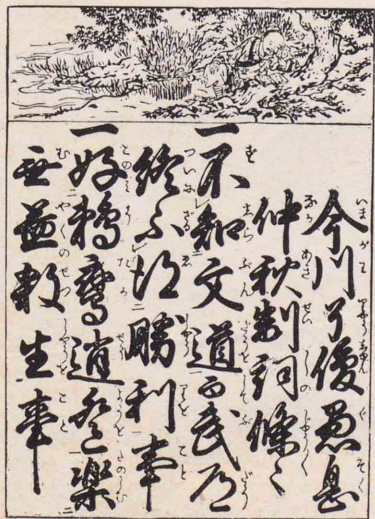 今川了俊愚息
仲秋制詞條々
一不知文道而武道
終不得勝利事
一好鵜鷹逍遥楽
無益殺生事